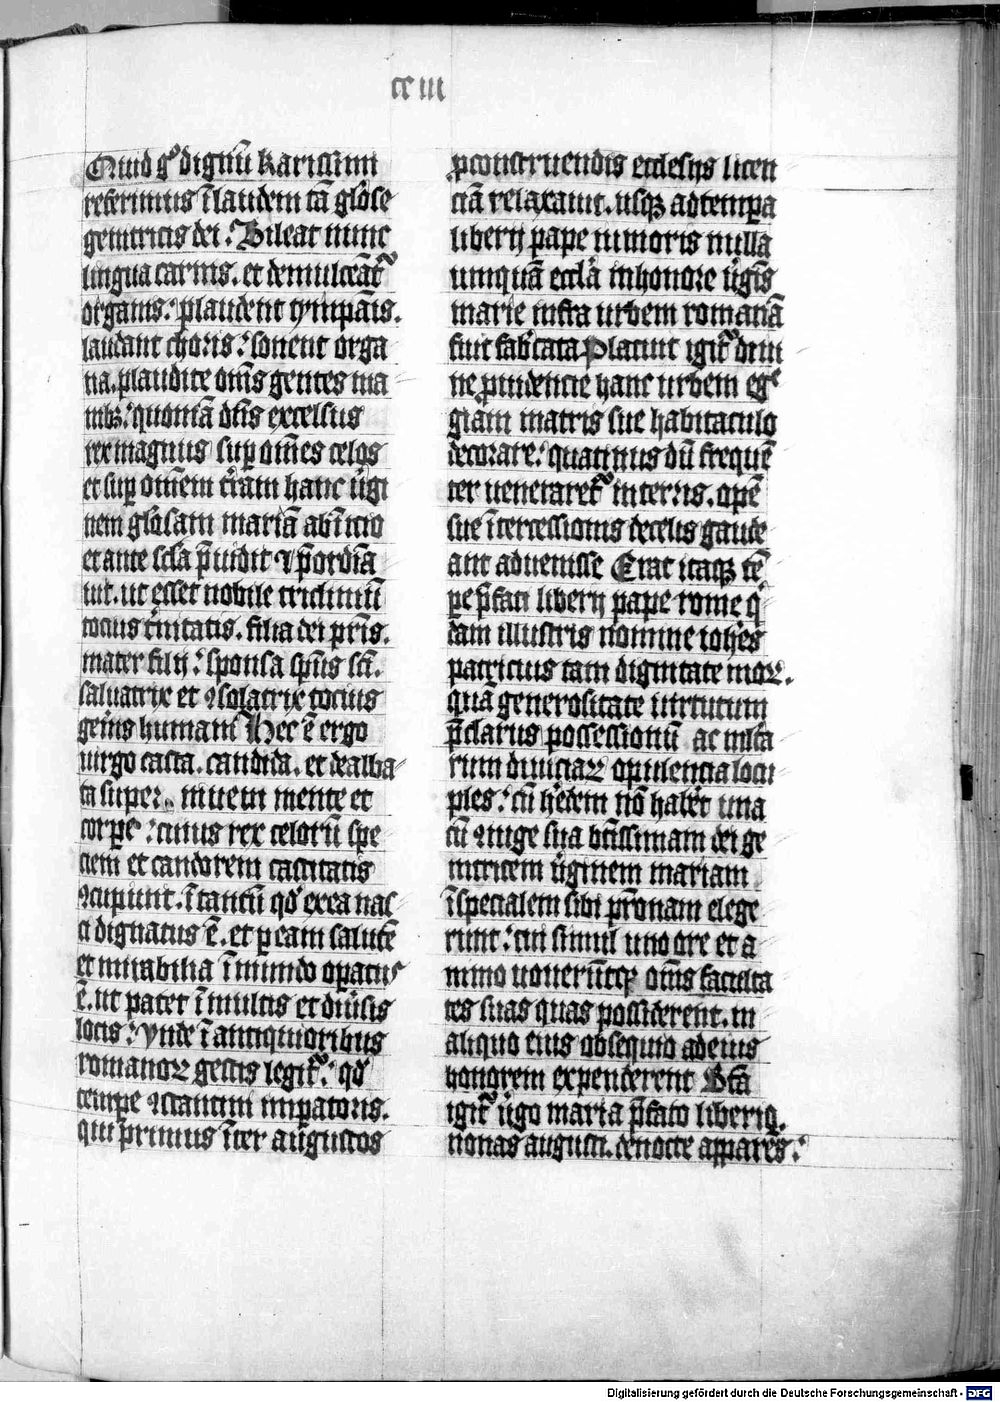 cciii
Quid gͦ dignū karissimi
referimus ī laudem tā gl̄ose
genitricis dei. Sileat nunc
lingua carnis. et demulceāt᷑
organis: plaudent tympāis.
laudant choris: sonent orga
na. plaudite om̄s gentes ma
nibꝫ: quoniā dn̄s excelsus
rex magnus suꝑ om̄es celos
et suꝑ omēm t̄ram hanc v̄gi
nem gl̄osam mariā ab īicio
et ante scl̄a p̄uidit ⁊ p̄ordīa
uit. ut esset nobile tricliniū
tocius t̄nitatis. filia dei pr̄is.
mater filij: sponsa sp̄us sc̄i.
saluatrix et ꝯsolatrix tocius
gen̄is humani Hec ē ergo
uirgo casta. candida. et dealba
ta super niuem mente et
corꝑe: cuius rex celorū spe
ciem et candorem castitatis
ꝯcupiuit. ī tantū qd̄ ex ea nas
ci dignatus ē. et ꝑ eam salutē
et mirabilia ī mundo opatus
ē. ut patet ī multis et diūsis
locis: Vnde ī antiquioribus
romanoꝝ gestis legit᷑: qd̄
tempe ꝯstantini impatoris.
qui primus īter augustos
ꝓ construendis ecclesijs licen
ciā relaxauit. usqꝫ ad tempa
liberij pape minoris nulla
umquā eccl̄a in honore v̄gīs
marie infra urbem romanā
fuit fab̄cata Placuit igit᷑ diui
ne ꝓuidencie hanc urbem eḡ
giam matris sue habitaculo
decorare: quatinus dū frequē
ter ueneraret᷑ in terris. opē
sue ītercessionis de celis gaude
ant aduenisse Erat itaqꝫ tē
pe p̄fati liberij pape rome q̄
dam illustris nomine ioh̄es
patricius tam dignitate moꝝ.
quā generositate uirtutum
p̄clarus possessionū ac mlta
rum diuiciaꝝ opulencia locu
ples: cū h̄edem nō hab̄et una
cū ꝯiuge sua bt̄issimam dei ge
nitricem v̄ginem mariam
ī specialem sibi pr̄onam elege
runt: cui simul uno ore et a
nimo uouerūtqꝫ om̄s faculta
tes suas quas possiderent. in
aliquo eius obsequio ad eius
honorem expenderent Bt̄a
igit᷑ v̄go maria p̄fato liberio.
nonas augusti. de nocte apparēs:
Digitalisierung gefördert durch die Deutsche Forschungsgemeinschaft - DFG